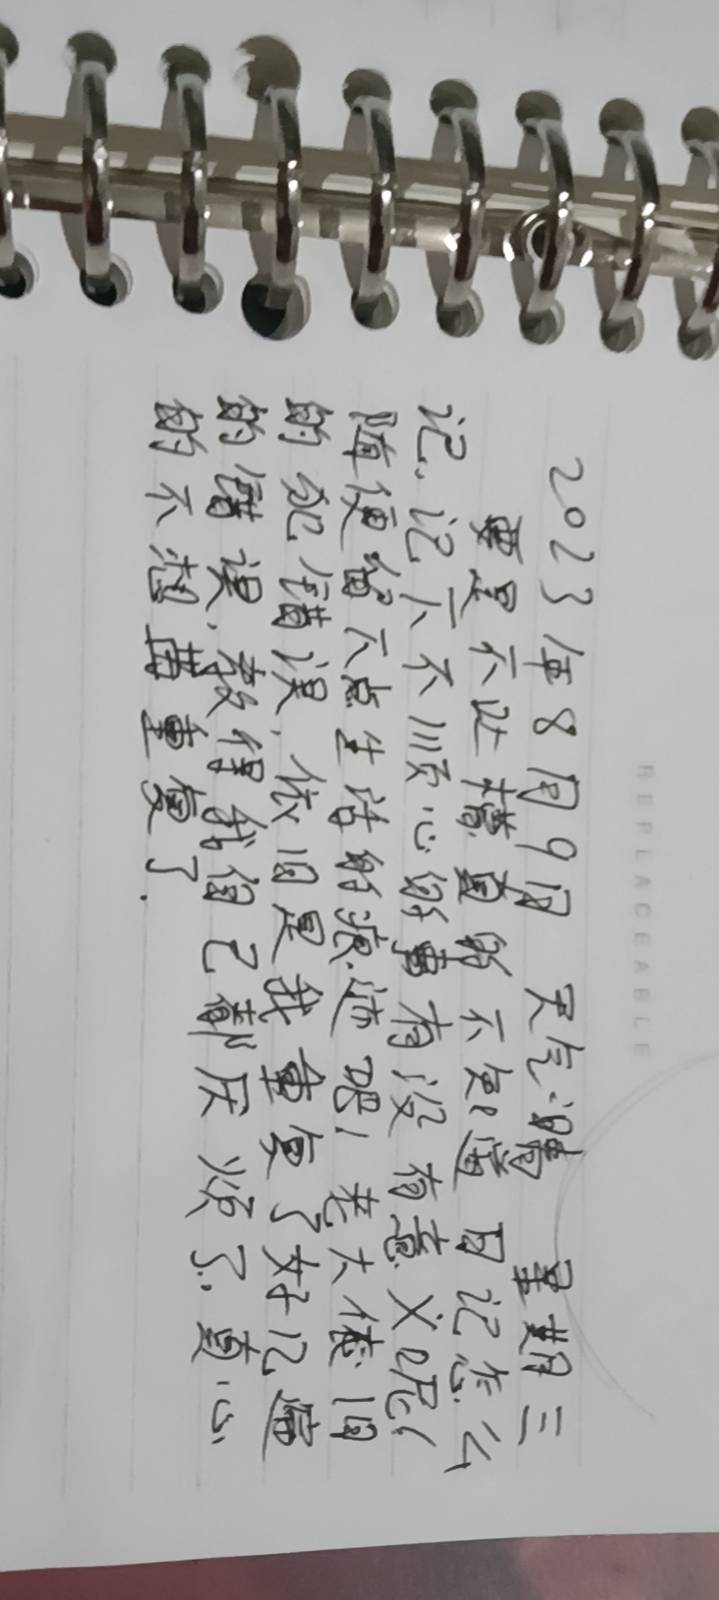 REPLACEABLE
2023年8月9日 天气:晴 星期三
要是不吐槽真的不知道日记怎么
记,记下不顺心的事有没有意义呢!
随便留下点生活的痕迹吧!老大依旧
的犯错误,依旧是我重复了好几遍
的错误,教得我自己都厌烦了,真心
的不想再重复了.